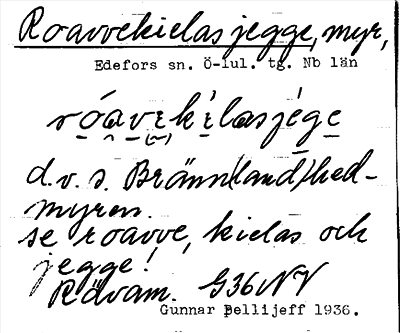 Roavvekielasjegge, myr,
Edefors sn. Ö-lul. tg. Nb län
róavveki̇̀lasjége
d.v.s. Bränn(land)hed-
myren.
se roavve, kielas och
jegge!
Rävam. G36NV
Gunnar Pellijeff 1936.